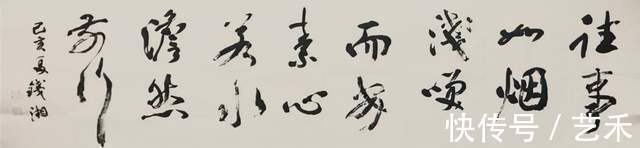 往事
如烟
浅笑
而安
素心
若水
澹然
前行
己亥夏钱湘
快传号/艺禾